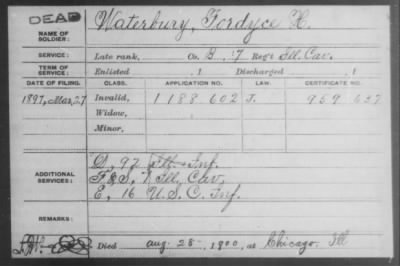 DEAD
NAME OF SOLDIER: Waterbury, Fordyce H.
SERVICE: Late rank, Co. B, 7 Reg't Ill. Cav.
TERM OF SERVICE: Enlisted , 1 Discharged , 1
DATE OF FILING. CLASS. APPLICATION NO. LAW. CERTIFICATE NO.
1897, Mar. 27 Invalid, 1188 602 J. 959 637
Widow,
Minor,
D, 92 Ill. Inf.
ADDITIONAL SERVICES: F&S, 7 Ill. Cav.
E, 16 U.S.C. Inf.
REMARKS:
Died Aug. 28, 1900, at Chicago Ill